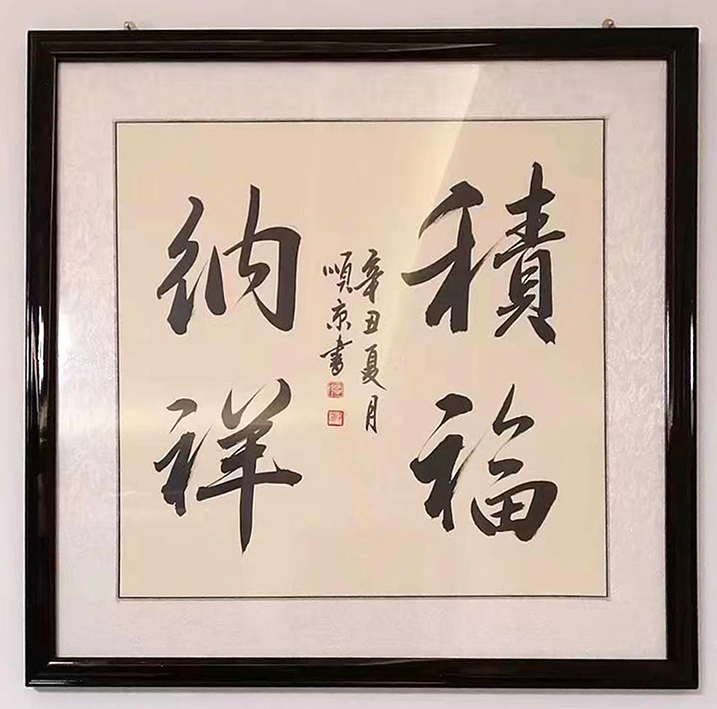 積福
納祥
辛丑夏月
順京書